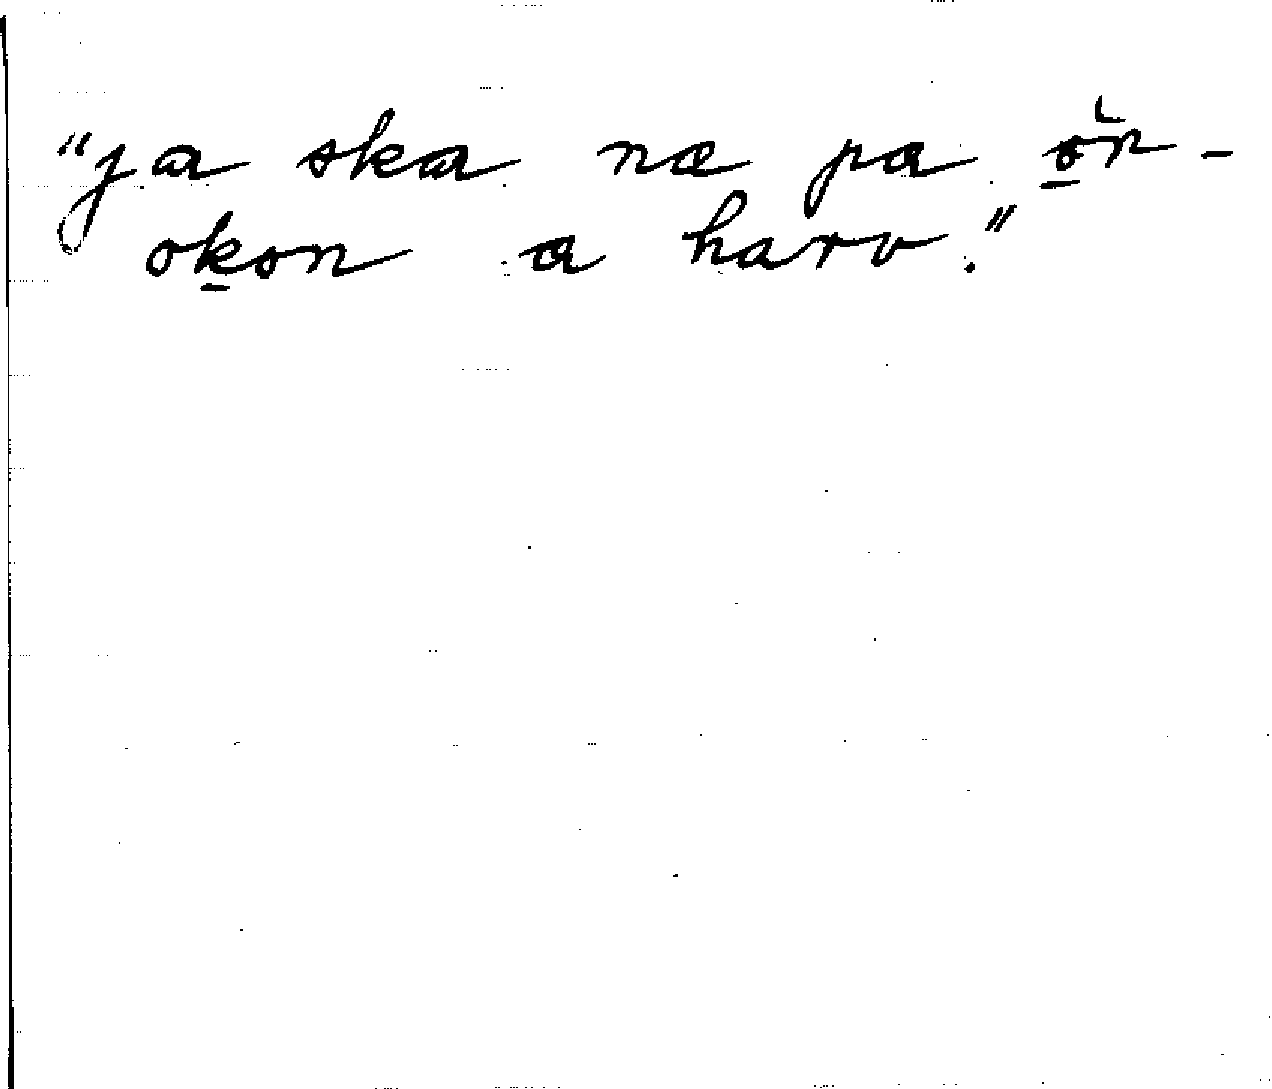 "ja ska na pa o̲r-
ok̲on a harv."